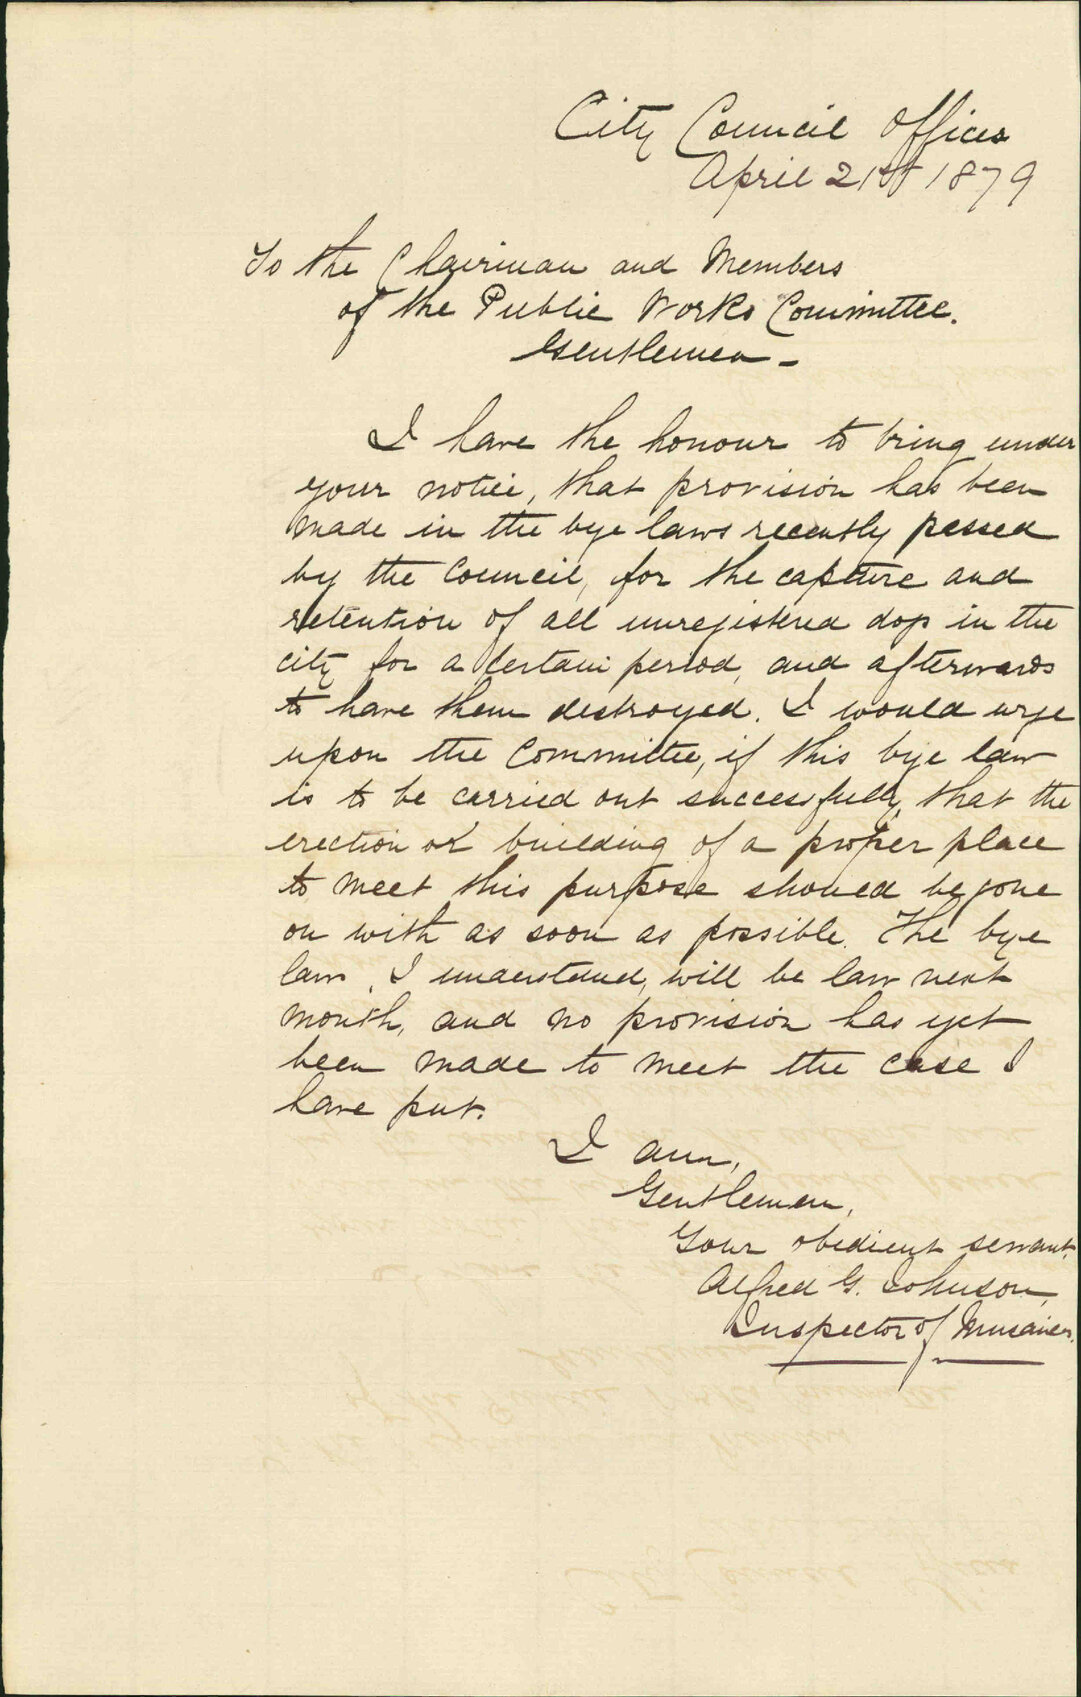 City Council Offices
April 21st 1879
To the Chairman and Members
of the Public Works Committee.
Gentlemen -
I have the honour to bring under
your notice, that provision has been
made in the bye laws recently passed
by the Council, for the capture and
retention of all unregistered dogs in the
city for a certain period, and afterwards
to have them destroyed. I would urge
upon the Committee, if this bye law
is to be carried out successfully, that the
erection or building of a proper place
to meet this purpose should be gone
on with as soon as possible. The bye
law, I understand, will be law next
month, and no provision has yet
been made to meet the case I
have put.
I am,
Gentlemen,
Your obedient servant,
Alfred G. Johnson,
Inspector of Nuisances.